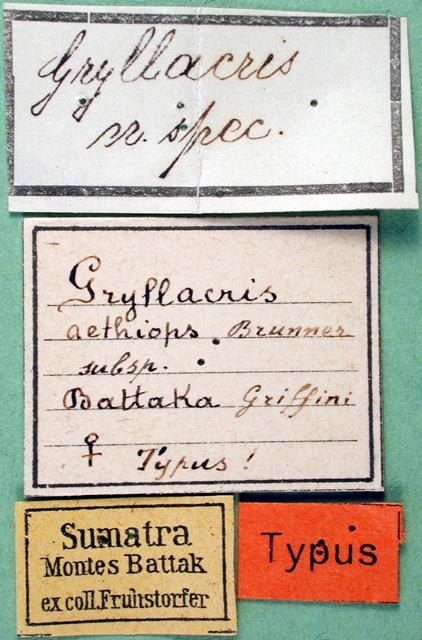 Gryllacris
n. spec.
Gryllacris
aethiops Brunner
subsp.
Battaka Griffini
♀ Typus!
Sumatra
Montes Battak
ex coll. Fruhstorfer
Typus